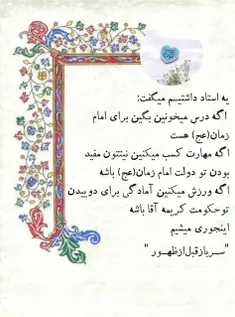 یه استاد داشتیم میگفت:
اگه درس میخونین بگین برای امام
زمان(عج) هست
اگه مهارت کسب میکنین نیتتون مفید
بودن تو دولت امام زمان(عج) باشه
اگه ورزش میکنین آمادگی برای دوییدن
توحکومت کریمه آقا باشه
اینجوری میشیم
"سـربازقبل‌ازظهـور "